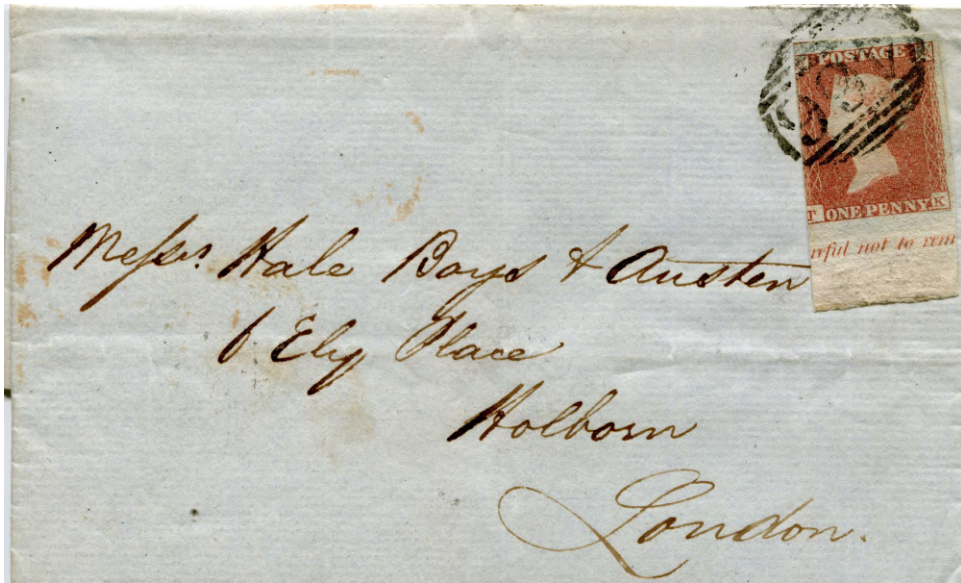 POSTAGE K
T ONE PENNY K
reful not to rem
Messrs. Hale Boys & Austen
6 Ely Place
Holborn
London.